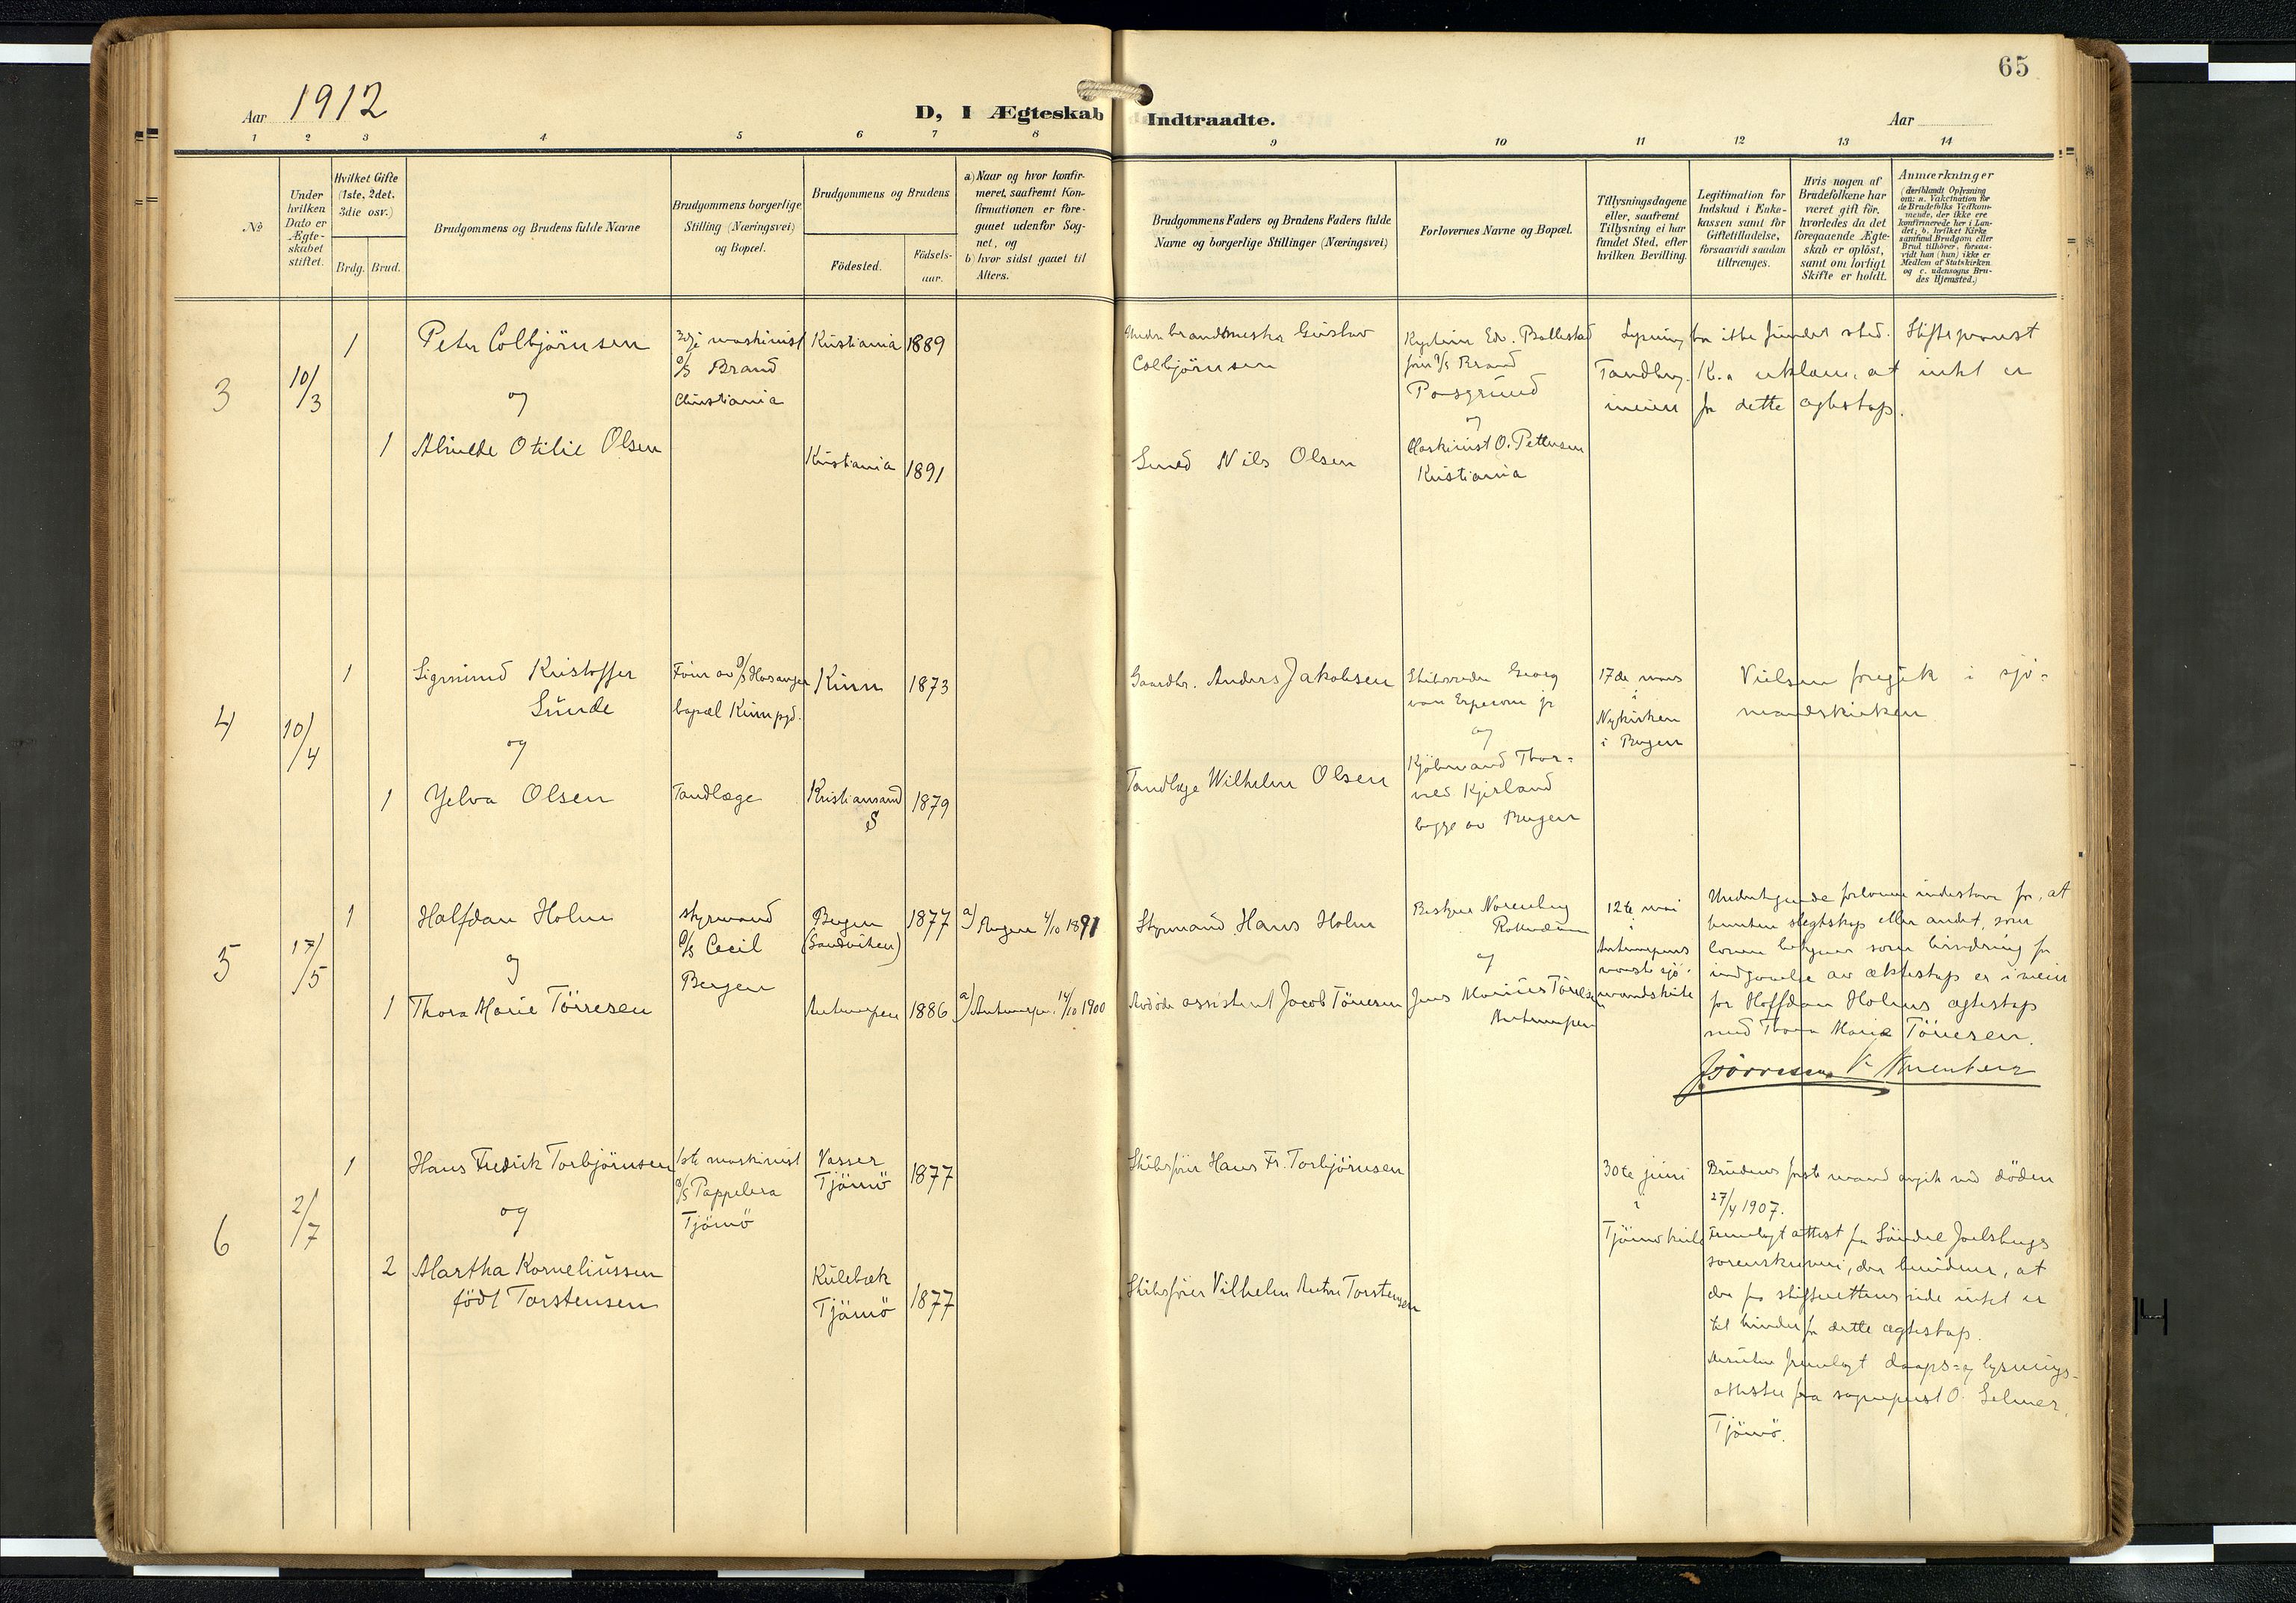 65
Aar 1912
D, I Ægteskab Indtraadte.
Aar
1 2 3 4 5 6 7 8 9 10 11 12 13 14
No
Under hvilken Dato er Ægteskabet stiftet.
Hvilket Gifte (1ste, 2det, 3die osv.)
Brdg. Brud.
Brudgommens og Brudens fulde Navne
Brudgommens borgerlige Stilling (Næringsvei) og Bopæl.
Brudgommens og Brudens
Födested.
Födselsaar.
a) Naar og hvor konfirmeret, saafremt Konfirmationen er foregaaet udenfor Sognet, og
b) hvor sidst gaaet til Alters.
Brudgommens Faders og Brudens Faders fulde Navne og borgerlige Stillinger (Næringsvei)
Forlovernes Navne og Bopæl.
Tillysningsdagene eller, saafremt Tillysning ei har fundet Sted, efter hvilken Bevilling.
Legitimation for Indskud i Enkekassen samt for Giftetilladelse, forsaavidt saadan tiltrænges.
Hvis nogen af Brudefolkene har været gift för, hvorledes da det foregaaende Ægteskab er oplöst, samt om lovligt Skifte er holdt.
Anmærkninger (deriblandt Oplysning om: a. Vakcination for de Brudefolks Vedkommende, der ikke ere konfirmerede her i Landet; b. hvilket Kirkesamfund Brudgom eller Brud tilhörer, forsaavidt han (hun) ikke er Medlem af Statskirken og c. udensogns Brudes Hjemsted.)
3
10/3
1
Peter Colbjörnsen
3dje maskinist
S/S Brand
Christiania
Kristiania
1889
og
1
Alvilde Otilie Olsen
Kristiania
1891
brandmester Gustav
Colbjörnsen
Smed Nils Olsen
Kaptein Edv. Ballestad
S/S Brand
Porsgrund
og
Maskinist O. Pettersen
Kristiania
Lysning har ikke fundet sted. Stiftsprovst
Tandberg Kr.a erklærer, at intet er
iveien for dette ægteskap.
4
10/4
1
Sigmund Kristoffer
Sunde
Förer av S/S Hosanger
bopæl Kinn pgd.
Kinn
1873
og
1
Yelva Olsen
Tandlæge
Kristiansand
S
1879
Gaardbr. Anders Jakobsen
Tandlæge Wilhelm Olsen
Skibsreder Georg
von Erpecom jr
og
Kjöbmand Thor=
Kjerland
begge av Bergen
17de mars
i
Nykirken
i Bergen
Vielsen foregik i sjö=
mandskirken
5
17/5
1
Halfdan Holm
styrmand
S/S Cecil
Bergen
Bergen
(Sandviken)
1877
a) Bergen 4/10 1891
og
1
Thora Marie Törresen
Antwerpen
1886
a) Antwerpen 14/10 1900
Styrmand Hans Holm
assistent Jacob Törresen
Norenberg
Rotterdam
og
Jens Marius Törresen
Antwerpen
12te mai
i
Antwerpens
norske sjö-
mandskirke
Undertegnede forlovere indestaar for, at
hverken slegtskap eller andet, som
loven betegner som hindring for
indgaaelse av ekteskap er i veien
for Halfdan Holms ægteskap
med Thora Marie Törresen.
6
2/7
1
Hans Fredrik Torbjörnsen
1ste maskinist
S/S Pappelera
Tjömö
Vasser
Tjömö
1877
og
2
Martha Korneliussen
födt Torstensen
Kulebæk
Tjömö
1877
Skibsförer Hans Fr. Torbjörnsen
Skibsförer Vilhelm Anton Torstensen
30te juni
i
Tjömö kirke
Brudens förste mand avgik ved döden
27/4 1907.
Fremlagt attest fra Söndre Jarlsbergs
sorenskriveri, der bevidner, at
der fra skifterettens side intet er
til hinder for dette ægteskap.
Desuten fremlagt daaps= og lysnings-
attester fra sogneprest O. Selmer,
Tjömö.